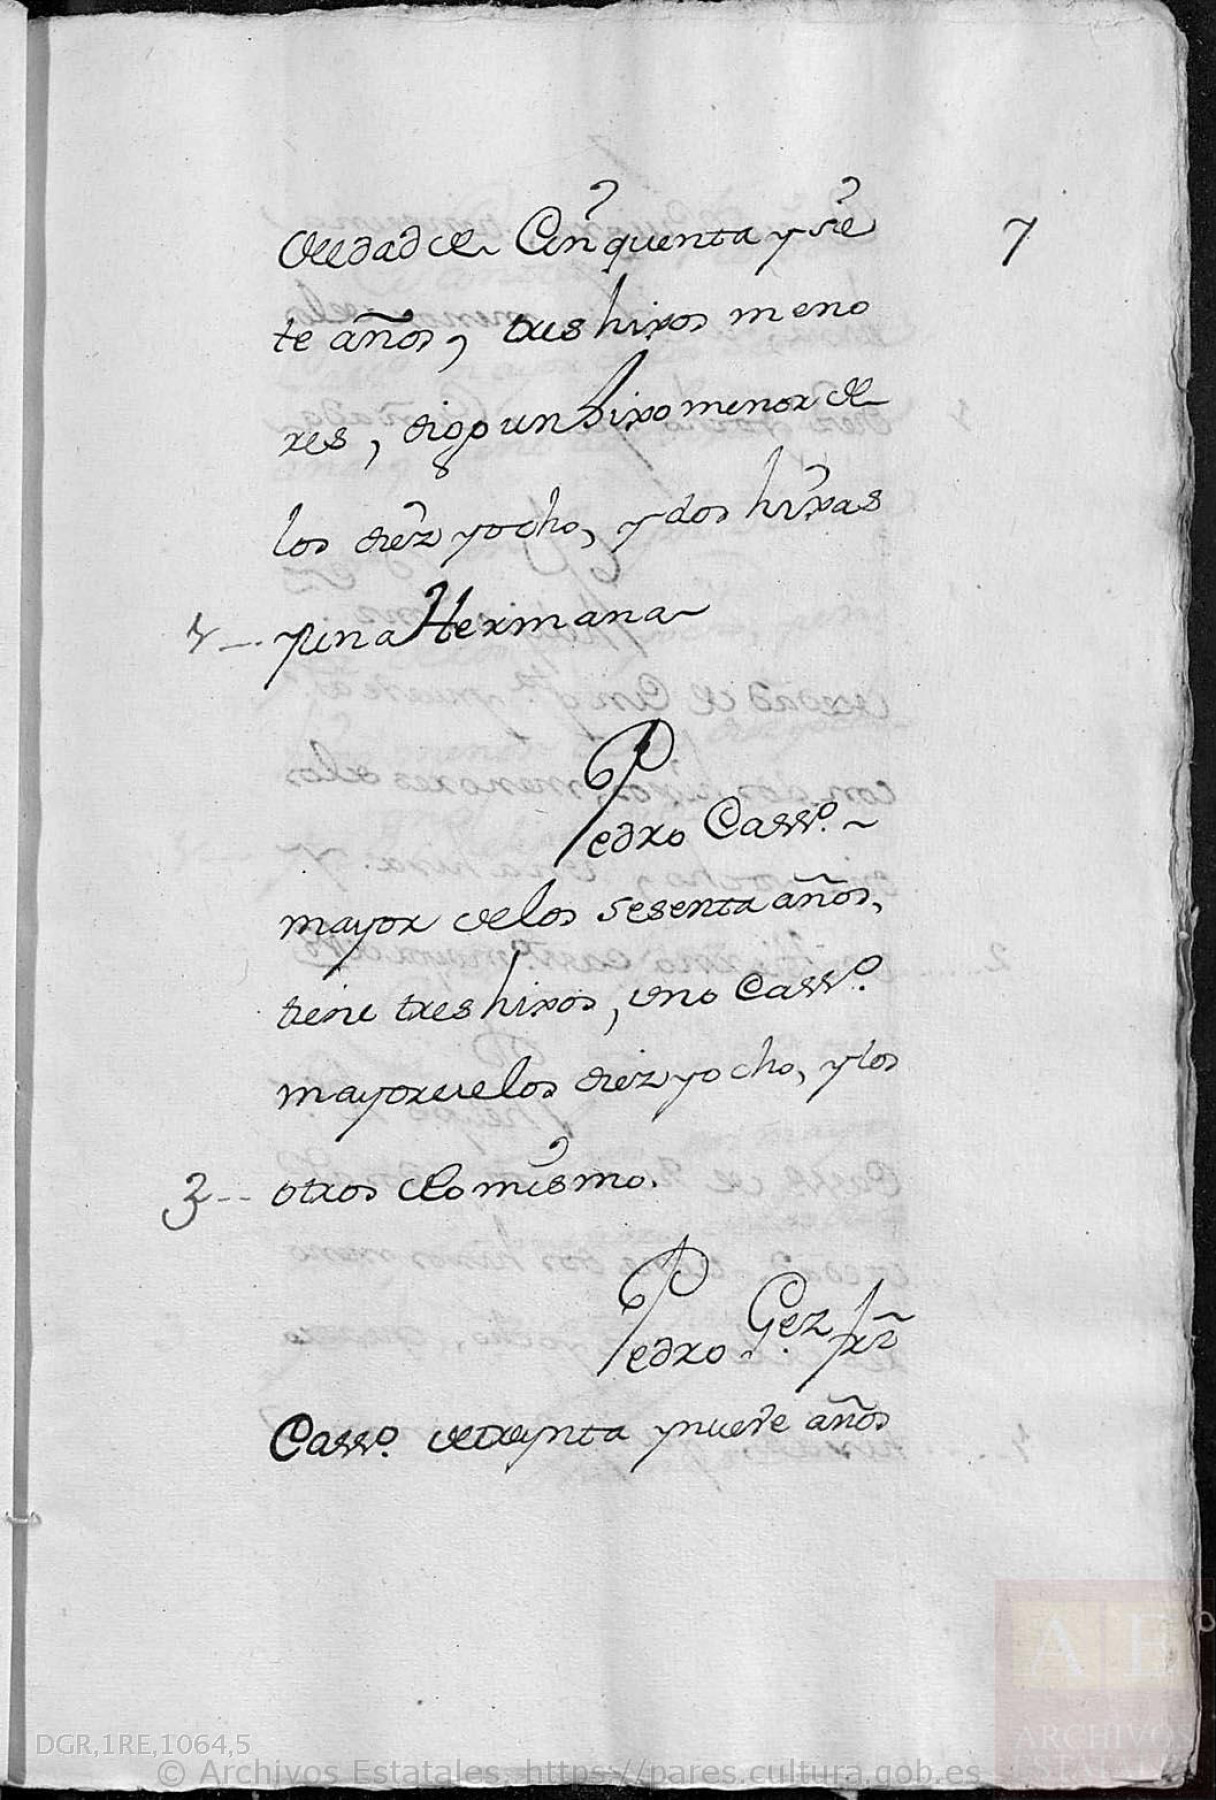 7
de edad de Cinquenta y sie
te años, tres hixos meno
res, digo un hixo menor de
los diez y ocho, y dos hixas
4 -- y una Hermana
Pedro Cass.º
mayor de los sesenta años,
tiene tres hixos, uno Cass.º
mayor de los diez y ocho, y los
3 -- otros de lo mismo.
Pedro Gez
Cass.º de treynta y nueve años
AE
ARCHIVOS
ESTATALES
DGR,1RE,1064,5
© Archivos Estatales, https://pares.cultura.gob.es